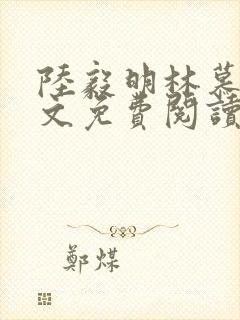 陸毅明林慕
文免費閱讀
鄭煤